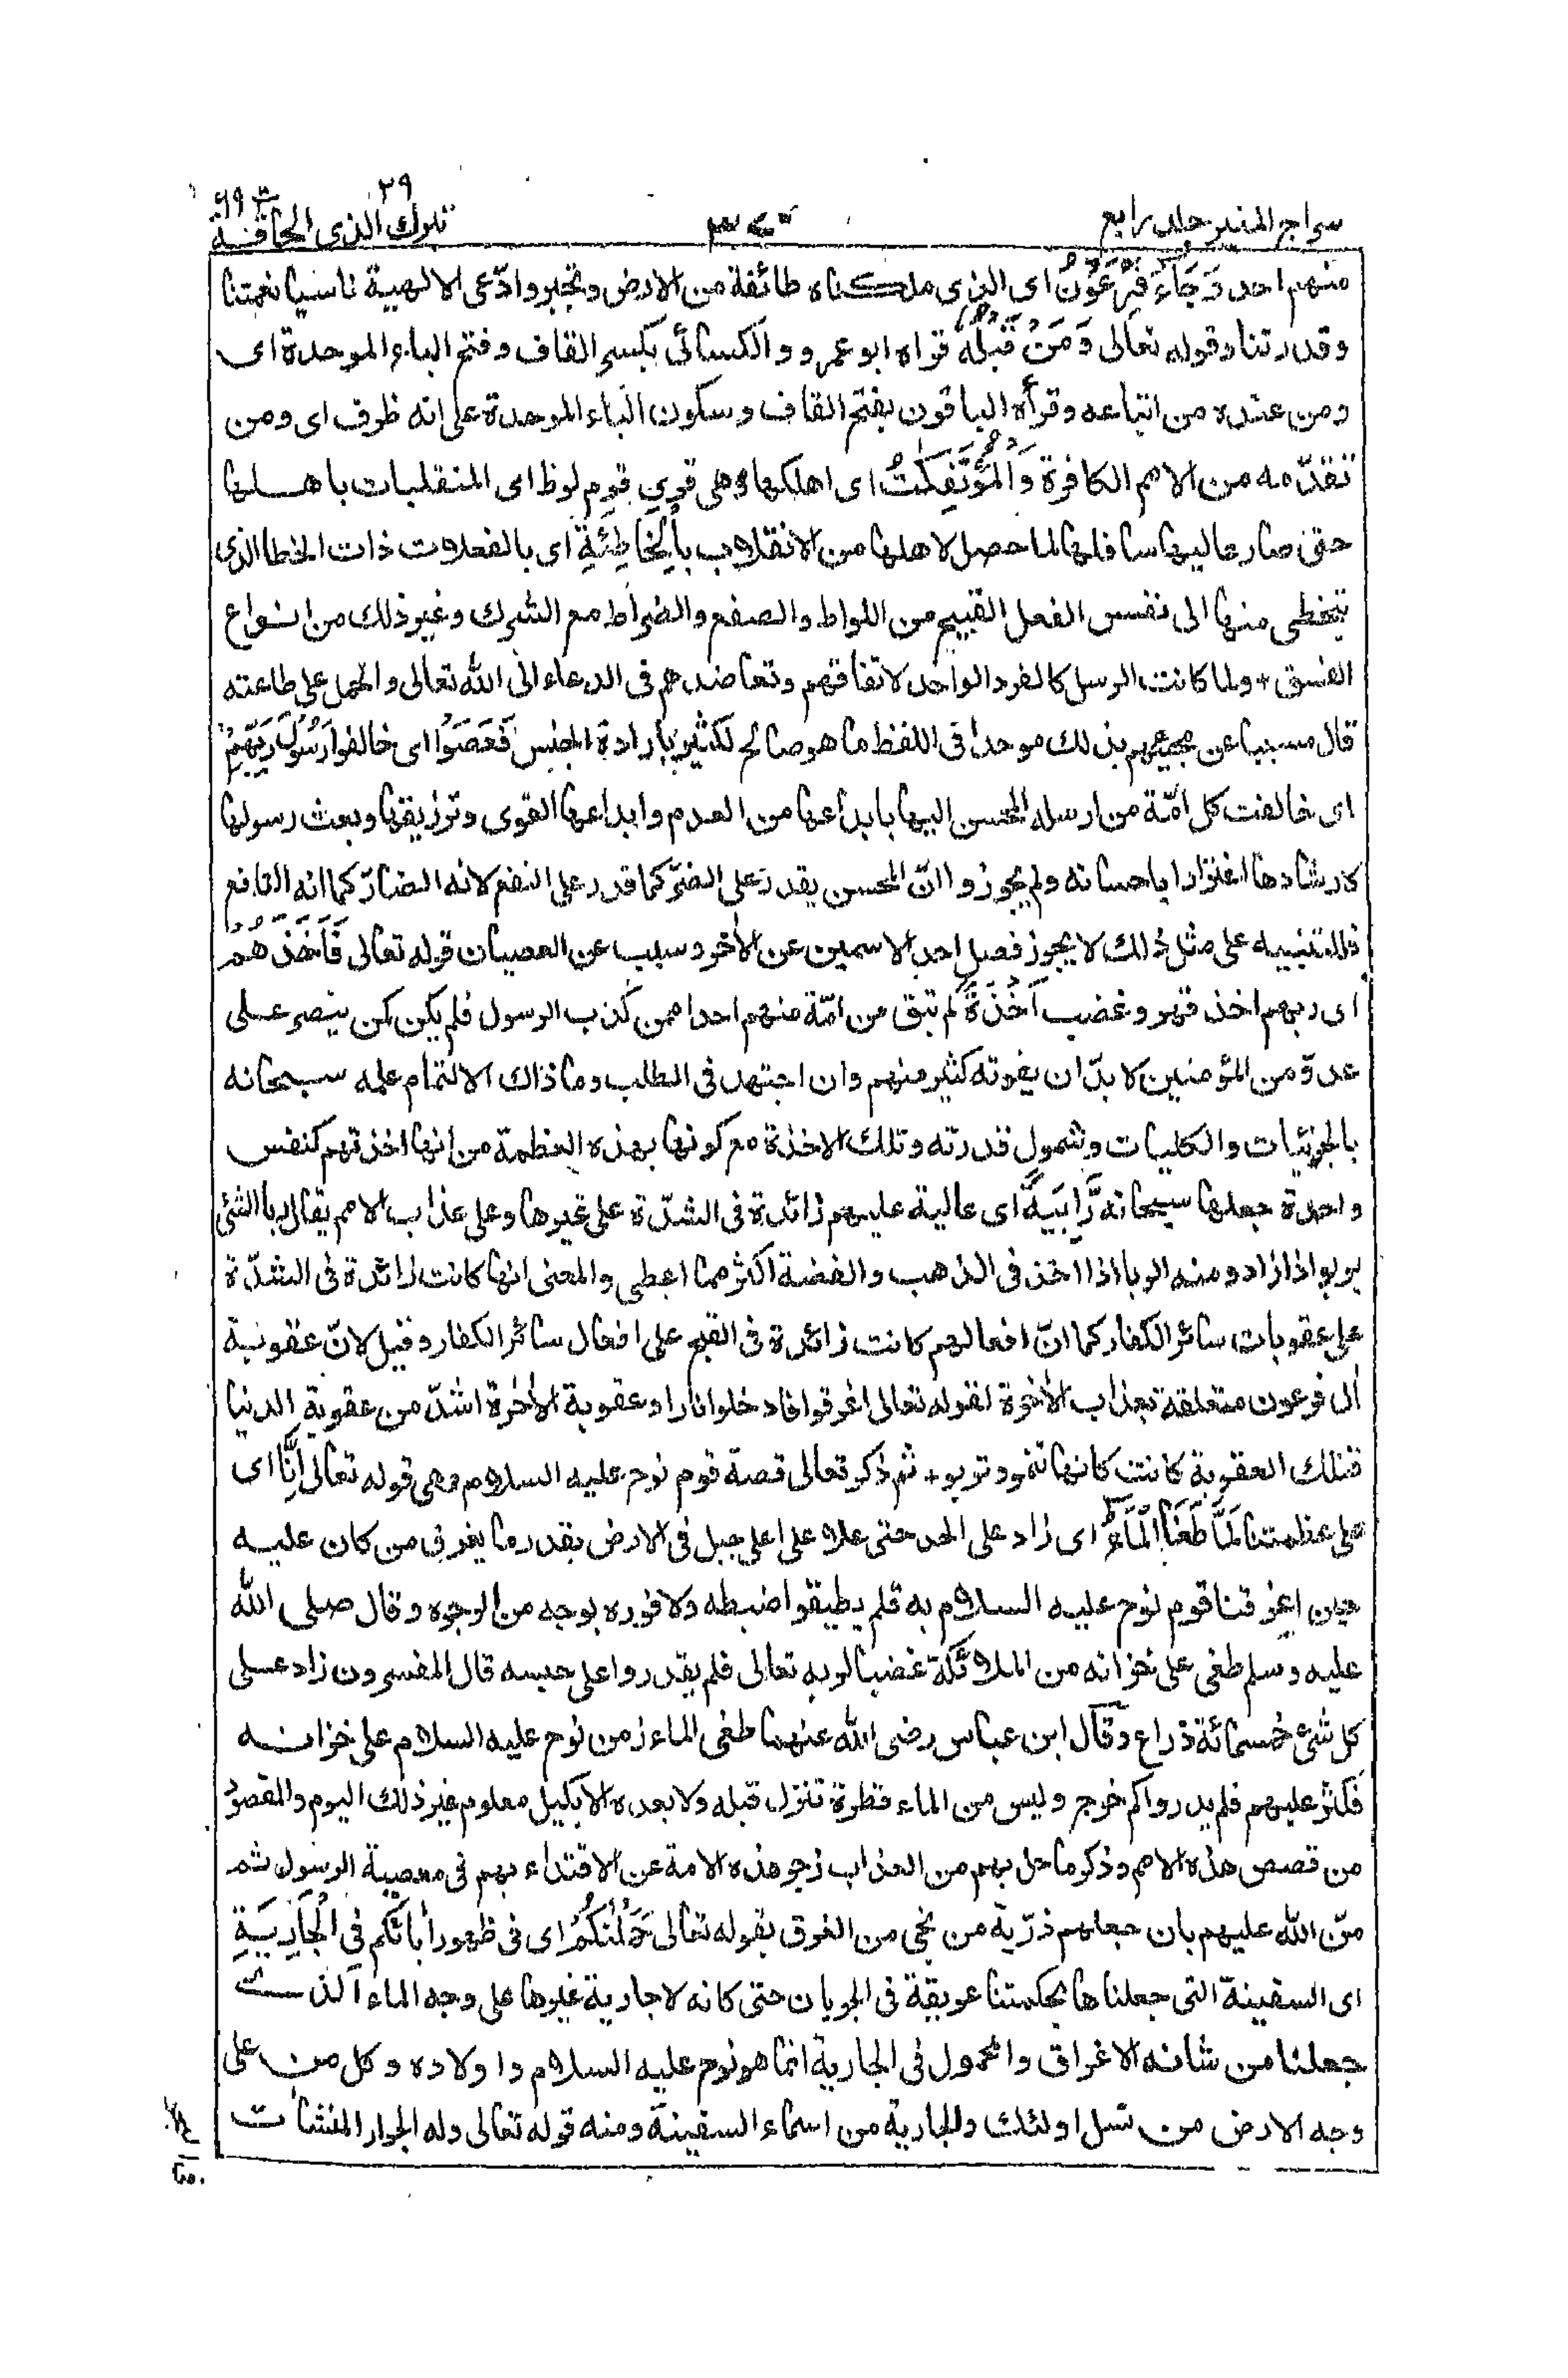 سراج المنير جلد رابع
٣٧٠
تبٰرك الذى ٢٩ الحاقة ٦٩
منهم احد وَجَاءَ فِرْعَوْنُ اى الذى ملكناه طائفة من الارض وتجبر وادّعى الالهية ناسيا نعمتنا
وقدرتنا وقوله تعالى وَمَنْ قَبْلَهٗ قراه ابو عمرو والكسائى بكسر القاف وفتح الباء الموحدة اى
ومن عنده من اتباعه وقرأه الباقون بفتح القاف وسكون الباء الموحدة على انه ظرف اى ومن
تقدّمه من الامم الكافرة وَالْمُؤْتَفِكٰتُ اى اهلكها وهى قرى قوم لوط اى المنقلبات باهلها
حتى صار عاليها سافلها لما حصل لاهلها من الانقلاب بِالْخَاطِئَةِ اى بالفعلات ذات الخطا الذى
يتخطى منها الى نفس الفعل القبيح من اللواط والصفع والضراط مع الشرك وغير ذلك من انواع
الفسق + ولما كانت الرسل كالفرد الواحد لاتفاقهم وتعاضدهم فى الدعاء الى الله تعالى والحمل على طاعته
قال مسببا عن مجيئهم بذلك موحدا فى اللفظ ما هو صالح لكثير بارادة الجنس فَعَصَوْا اى خالفوا رَسُوْلَ رَبِّهِمْ
اى خالفت كل امّة من ارسله المحسن اليها بابداعها من العدم وابداعها القوى وترزيقها وبعث رسولها
لارشادها اغترارا باحسانه ولم يجوزوا انّ المحسن يقدر على الضرّ كما قدر على النفع لانه الضارّ كما انه النافع
فللتنبيه على مثل ذلك لا يجوز فصل احد الاسمين عن الاٰخر وسبب عن العصيان قوله تعالى فَاَخَذَهُمْ
اى ربهم اخذ قهر وغضب اَخْذَةً لم تبق من امّة منهم احدا ممن كذب الرسول فلم يكن كمن ينصر على
عدوّ من المؤمنين لا بدّ ان يفوته كثير منهم وان اجتهد فى المطلب وما ذاك الا لتمام علمه سبحانه
بالجزئيات والكليات وشمول قدرته وتلك الاخذة مع كونها بهذه العظمة من انها اخذتهم كنفس
واحدة جعلها سبحانه رَّابِيَةً اى عالية عليهم زائدة فى الشدّة على غيرها وعلى عذاب الامم يقال ربا الشئ
يربو اذا زاد ومنه الربا اذا اخذ فى الذهب والفضة اكثر مما اعطى والمعنى انها كانت زائدة فى الشدّة
على عقوبات سائر الكفار كما انّ افعالهم كانت زائدة فى القبح على افعال سائر الكفار وقيل لانّ عقوبة
اٰل فرعون متعلقة بعذاب الاٰخرة لقوله تعالى اغرقوا فادخلوا نارا وعقوبة الاٰخرة اشدّ من عقوبة الدنيا
فتلك العقوبة كانت كانها تنمو وتربو + ثم ذكر تعالى قصة قوم نوح عليه السلام وهى قوله تعالى اِنَّا اى
على عظمتنا لَمَّا طَغَا الْمَاءُ اى زاد على الحد حتى علا على اعلى جبل فى الارض بقدر ما يغرق من كان عليه
حين اغرقنا قوم نوح عليه السلام به فلم يطيقوا ضبطه ولا فوره بوجه من الوجوه وقال صلى الله
عليه وسلم طغى على خزانه من الملائكة غضبا لربه تعالى فلم يقدروا على حبسه قال المفسرون زاد على
كل شئ خمسمائة ذراع وقال ابن عباس رضى الله عنهما طغى الماء زمن نوح عليه السلام على خزانه
فكثر عليهم فلم يدروا كم خرج وليس من الماء قطرة تنزل قبله ولا بعده الا بكيل معلوم غير ذلك اليوم والمقصود
من قصص هذه الامم وذكر ما حل بهم من العذاب زجر هذه الامة عن الاقتداء بهم فى معصية الرسول ثم
منّ الله عليهم بان جعلهم ذرّية من نجى من الغرق بقوله تعالى حَمَلْنٰكُمْ اى فى ظهور اٰبائكم فِى الْجَارِيَةِ
اى السفينة التى جعلناها بحكمتنا عريقة فى الجريان حتى كانه لا جارية غيرها على وجه الماء الذى
جعلنا من شانه الاغراق والمحمول فى الجارية انما هو نوح عليه السلام واولاده وكل من على
وجه الارض من نسل اولئك والجارية من اسماء السفينة ومنه قوله تعالى وله الجوار المنشاٰت